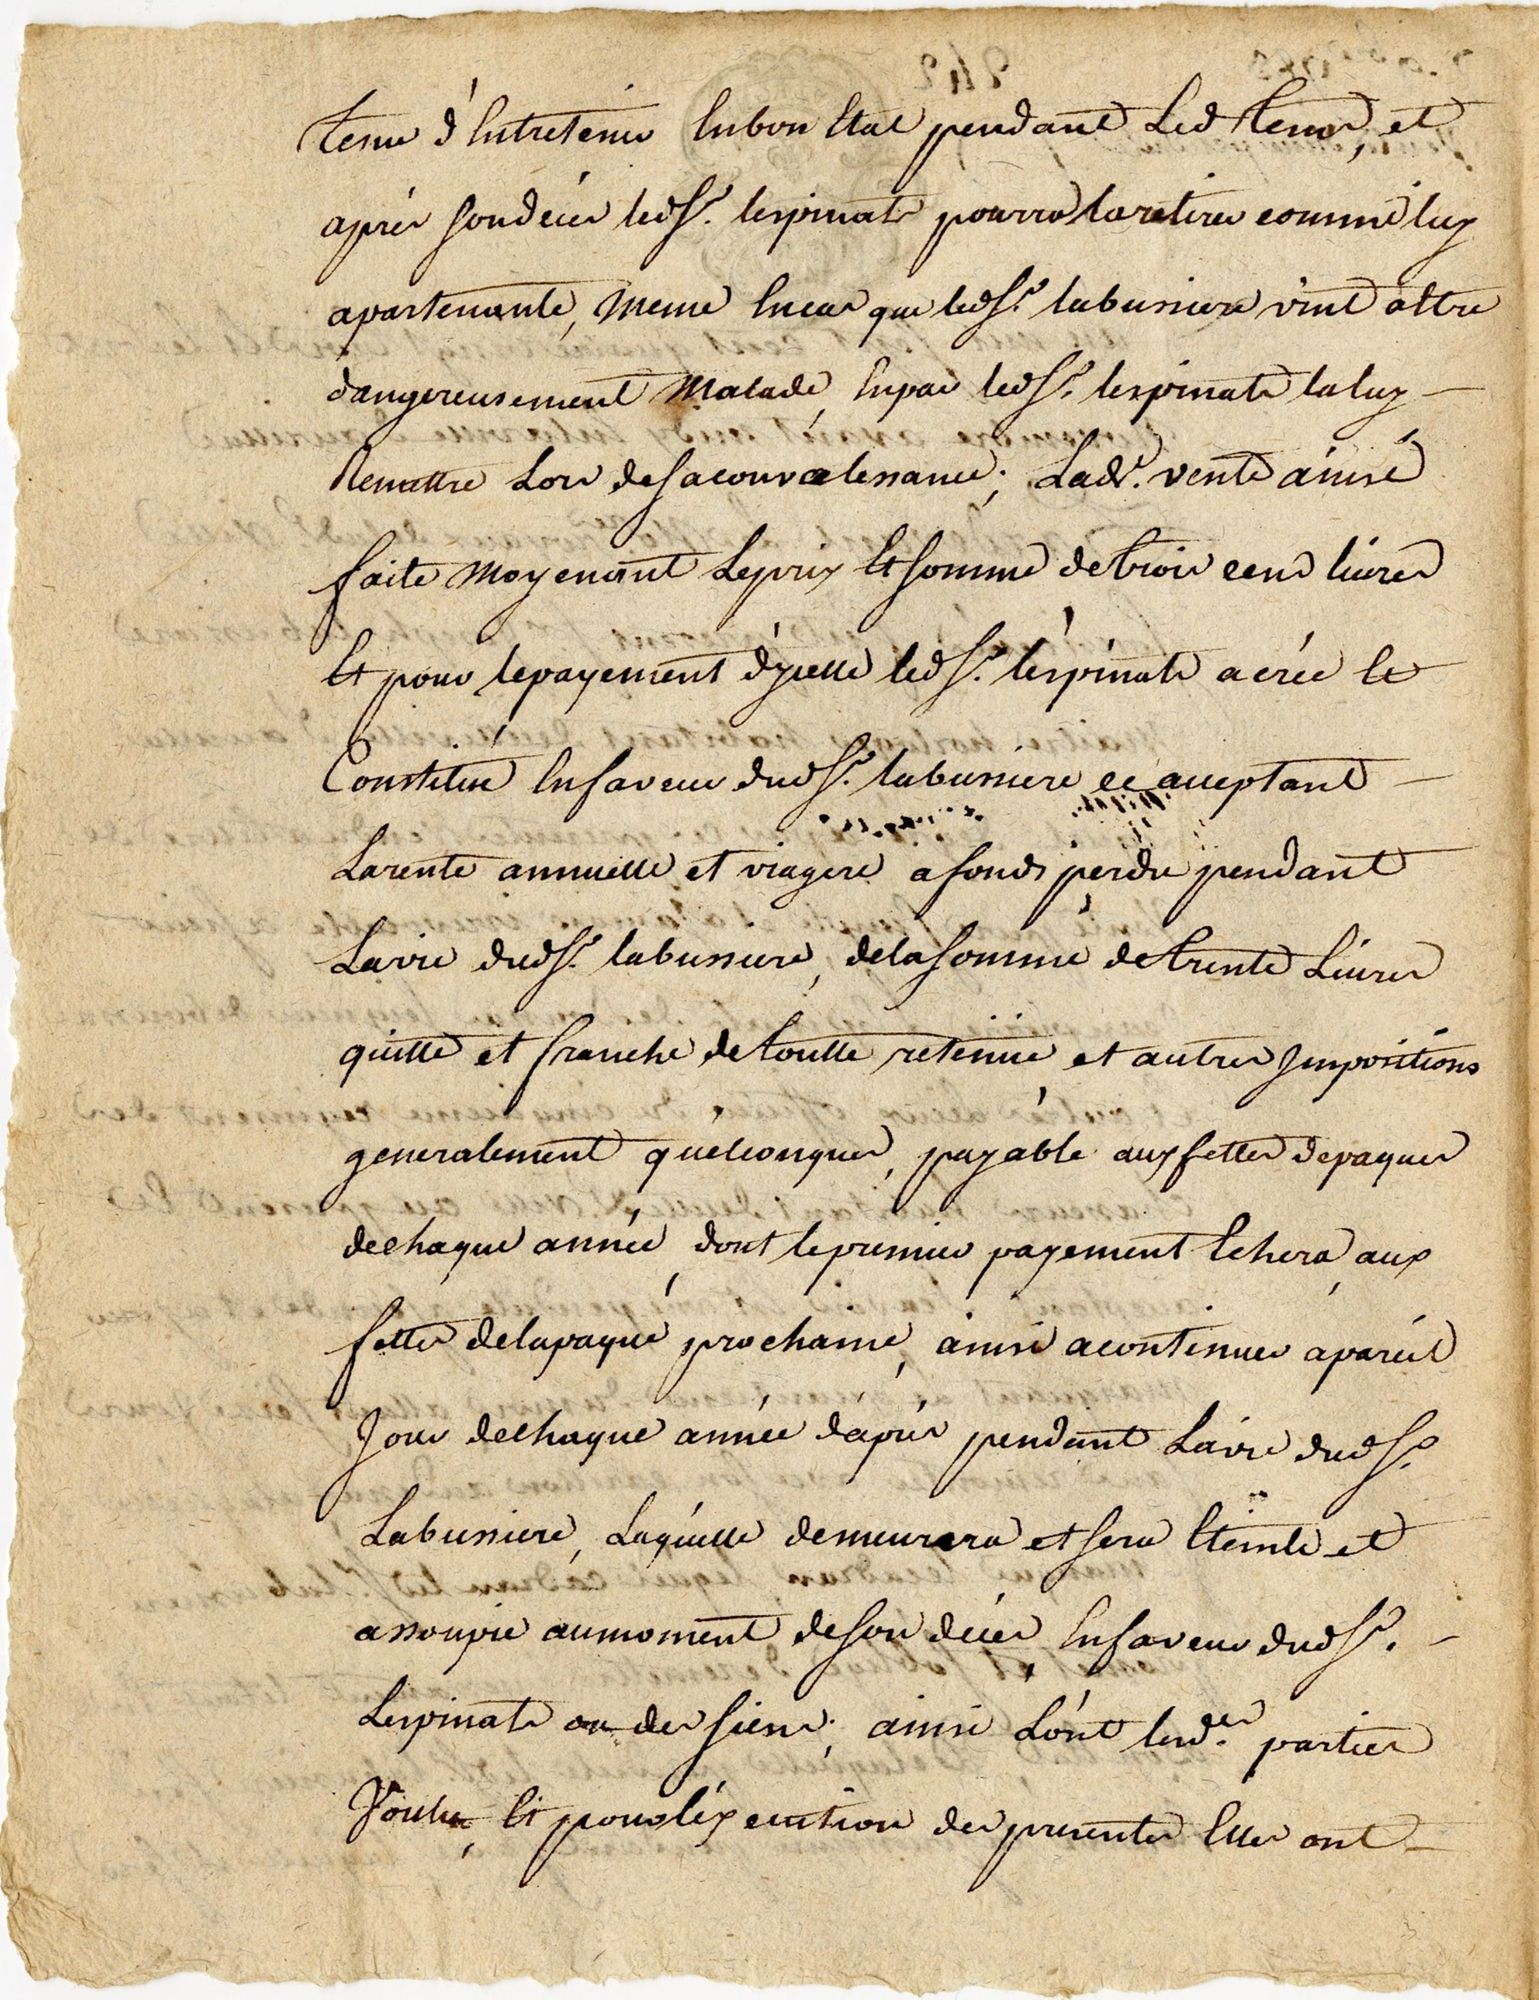 tenu d'Entretenir En bon Etat pendant Led. tems, et
après son décés led. Sr. lespinats pourra la retirer comme luy
apartenante, meme En cas que led. Sr. labussiere vint a être
dangereusement malade, En par led. Sr. lespinats la luy
Remettre Lors de sa convalessance; Lad. vente ainsi
faite moyenant Le prix Et somme de trois cens livres
Et pour le payement d'ycelle led. Sr. léspinats a créé Et
Constitué En faveur dud. Sr. labussiere ce acceptant
La rente annuelle et viagere a fonds perdu pendant
La vie dud. Sr. labussiere, de la somme de trente Livres
quitte et franche de toutte retenüe et autres Jmpositions
generalement quélconques, payable aux fettes de paques
de chaque année, dont le premier payement Echera aux
fettes de la paque prochaine, ainsi a continuer a paréil
Jour de chaque année d'aprés pendant La vie dud. Sr.
Labussiere, Laquelle demeurera et sera Eteinte et
assoupie au moment de son décés, En faveur dud. Sr.
Lespinats ou des siens; ainsi L'ont lesd.es parties
Voulu, Et pour léxecution des presentes Elles ont